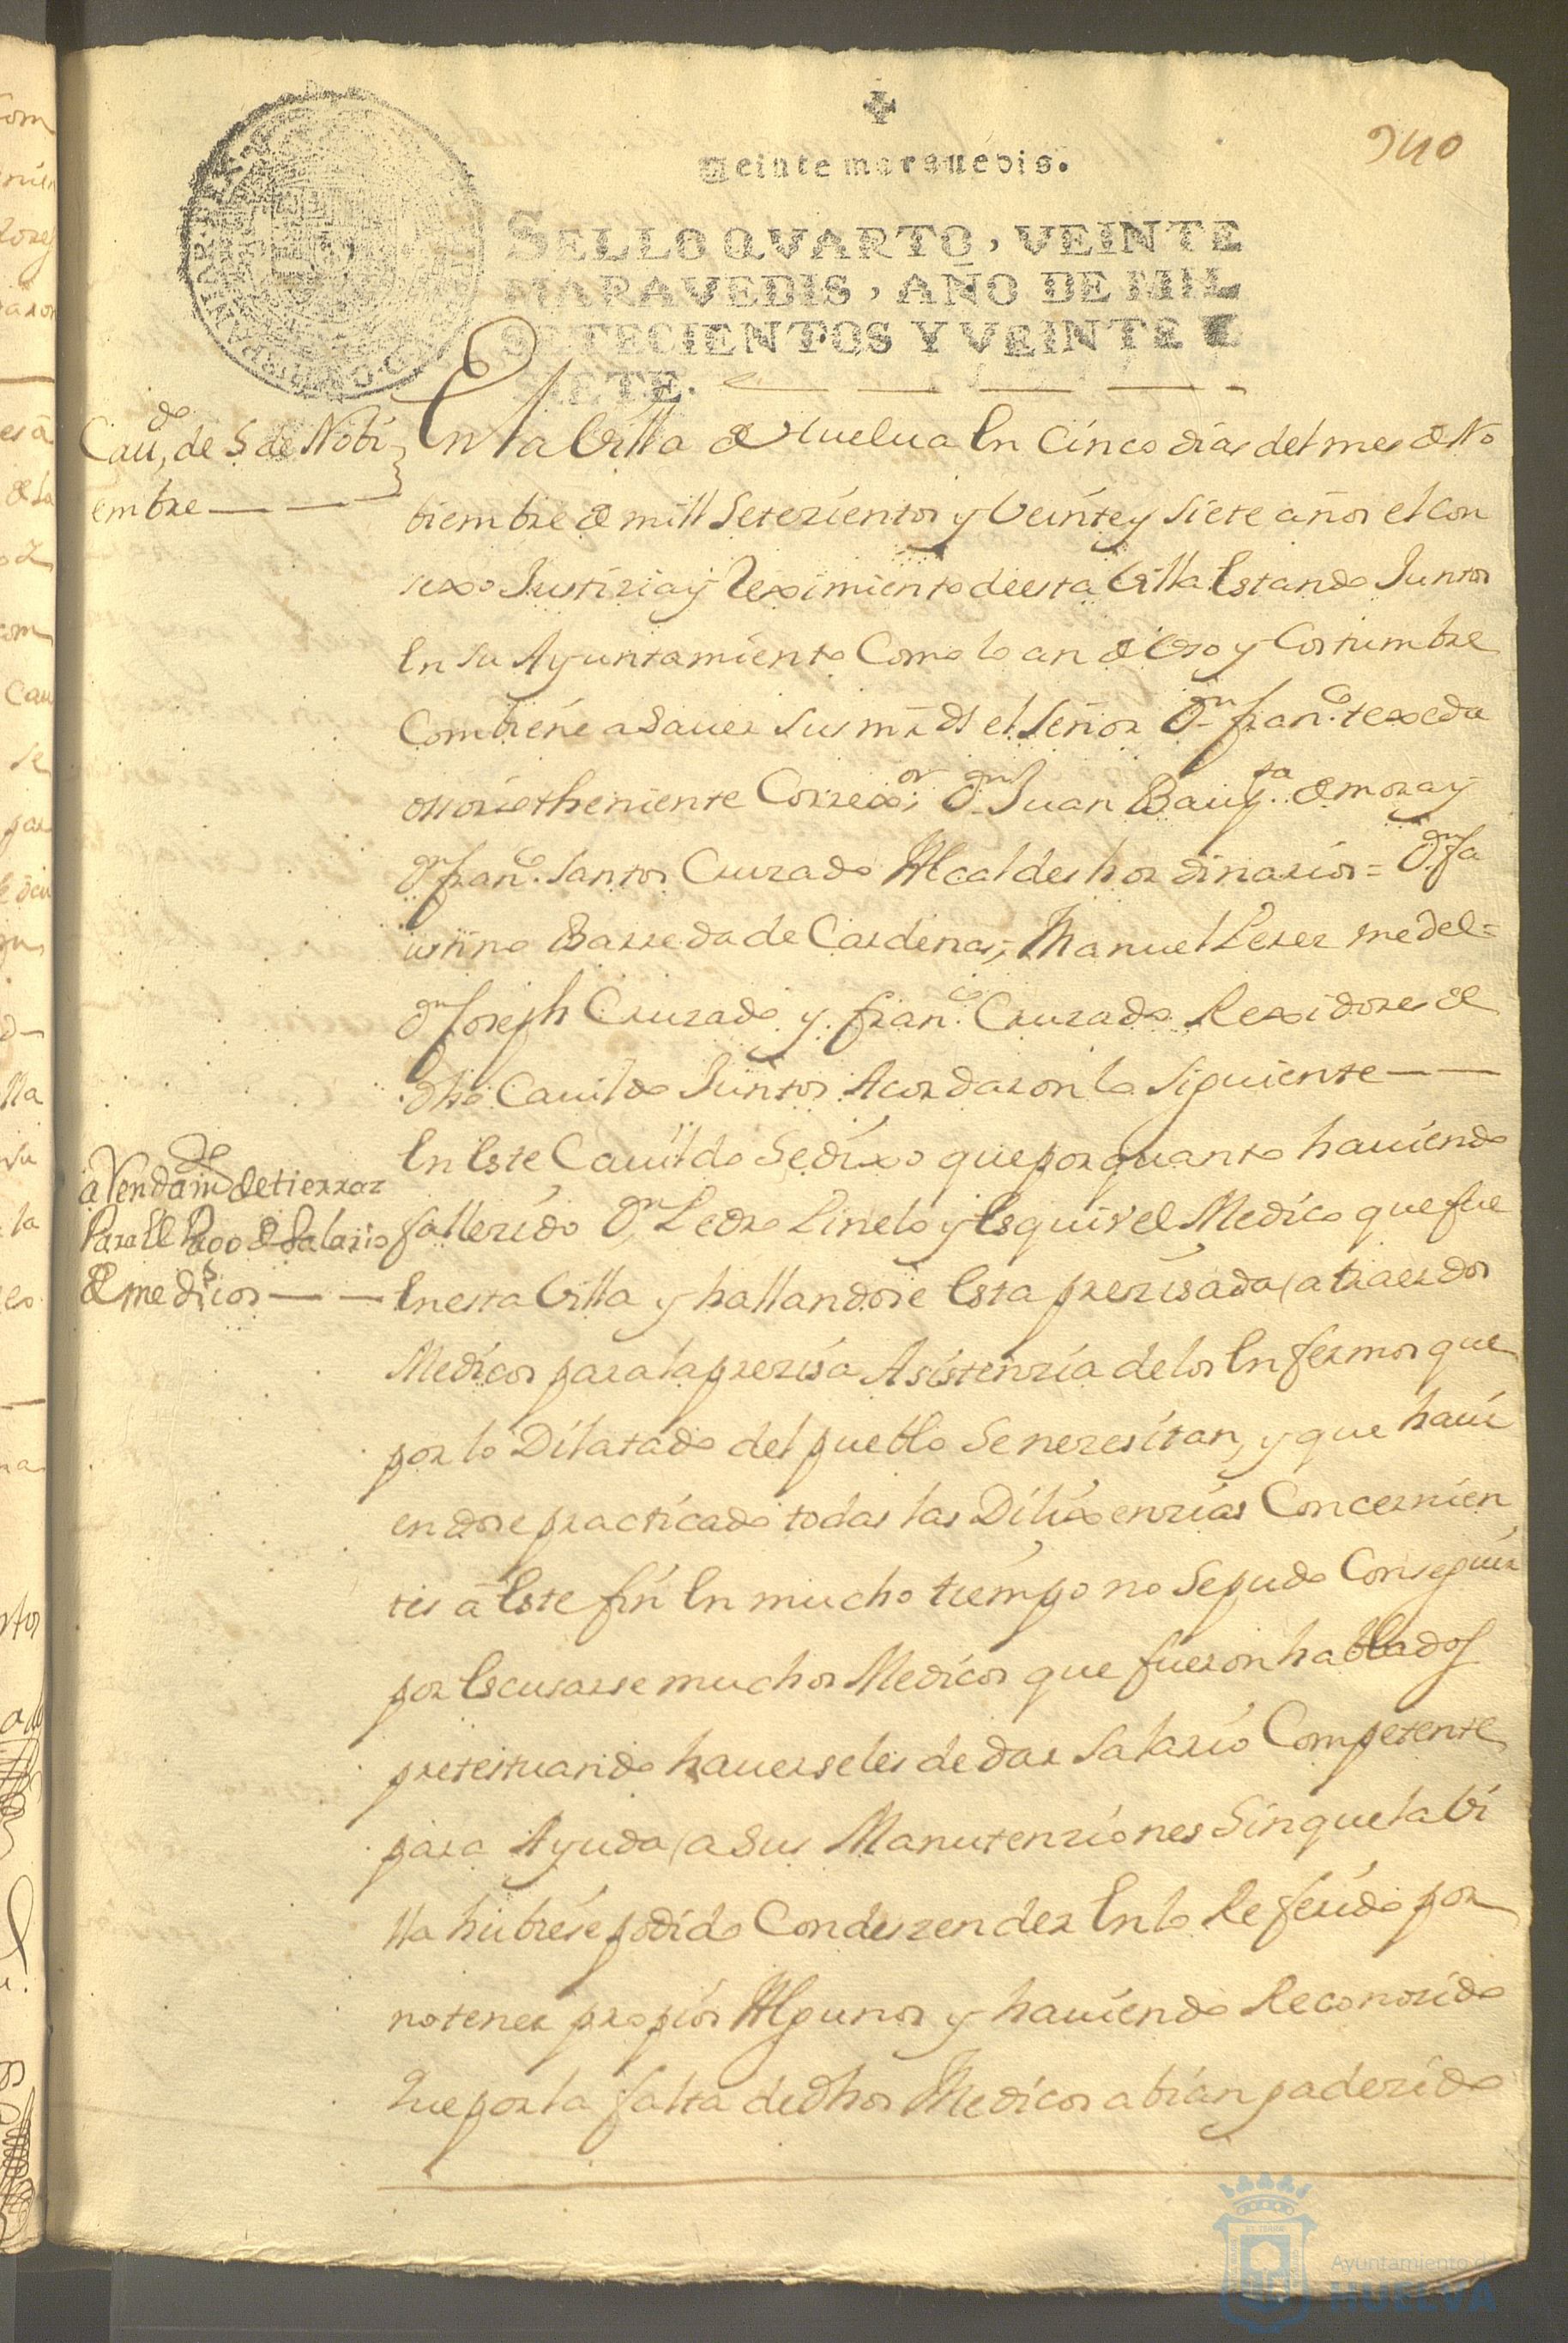 240
Veinte maravedis.
SELLO QVARTO, VEINTE
MARAVEDIS, AÑO DE MIL
SETECIENTOS Y VEINTE Y
SIETE.
Cau,do de 5 de Nobi
embre
En la Villa de Huelua En Cinco dias del mes de No
biembre de mill Setezientos y Veinte y siete años el Con
sexo Justizia y Reximiento de esta Villa Estando Juntos
En su Ayuntamiento Como lo an de Uso y Costumbre
Combiene a Sauer sus mrds el Señor Dn franco. texeda
ossorio theniente Correxor, Dn Juan Bauta. de mora y
Dn franco. Santos Cruzado Alcaldes hordinarios = Dn fa
ustino Barreda de Cardenas, Manuel Perez medel =
Dn Joseph Cruzado y franco. Cruzado Rexidores de
dho Cauildo Juntos Acordaron lo Siguiente
aRendamto de tierras
Para El Pago de Salario
de medicos
En Este Cauildo Se dixo que por quanto hauiendo
fallezido Dn Pedro Pinelo y Esquivel Medico que fue
En esta Villa y hallandose Esta prezisada a traer dos
Medicos para la prezisa Asistenzia de los Enfermos que
por lo Dilatado del pueblo Se nezesitan, y que haui
endose practicado todas las Dilixenzias Concernien
tes a Este fin En mucho tiempo no Se pudo Conseguir
por Escusarse muchos Medicos que fueron hablados
pretestuando hauerseles de dar Salario Competente
para Ayuda a Sus Manutenziones Sin que la Vi
lla hubiese podido Condeszender En lo Referido por
no tener propios Algunos y hauiendo Reconozido
Que por la falta de dhos Medicos abian padezido
Ayuntamiento de
HUELVA